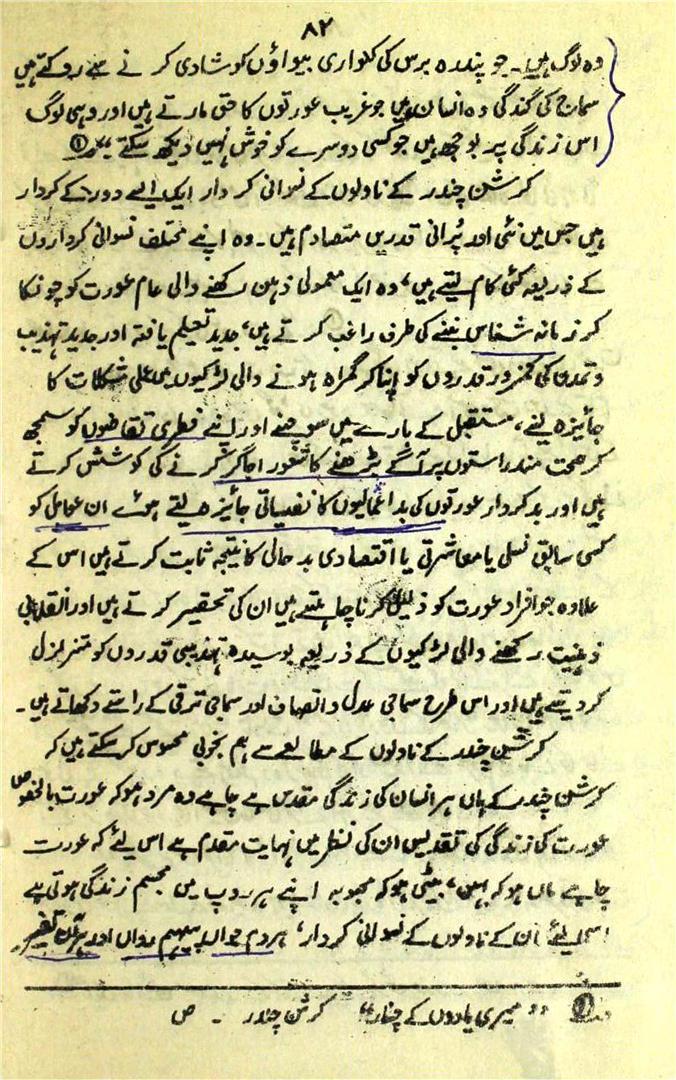 ۸۲
وہ لوگ ہیں۔ جو پندرہ برس کی کنواری بیواؤں کو شادی کرنے سے روکتے ہیں
سماج کی گندگی وہ انسان ہیں جو غریب عورتوں کا حق مارتے ہیں اور وہی لوگ
اس زندگی پر بوجھ ہیں جو کسی دوسرے کو خوش نہیں دیکھ سکتے ①
کرشن چندر کے ناولوں کے نسوانی کردار ایک ایسے دور کے کردار
ہیں جس میں نئی اور پُرانی قدریں متصادم ہیں۔ وہ اپنے مختلف نسوانی کرداروں
کے ذریعہ کئی کام لیتے ہیں، وہ ایک معمولی ذہن رکھنے والی عام عورت کو چونکا
کر زمانہ شناس بننے کی طرف راغب کرتے ہیں، جدید تعلیم یافتہ اور جدید تہذیب
و تمدن کی کمزور قدروں کو اپنا کر گمراہ ہونے والی لڑکیوں میں عملی مشکلات کا
جائیزہ لینے، مستقبل کے بارے میں سوچنے اور اپنے فطری تقاضوں کو سمجھ
کر صحت مند راستوں پر آگے بڑھنے کا شعور اجاگر کرنے کی کوشش کرتے
ہیں اور بدکردار عورتوں کی بداعمالیوں کا نفسیاتی جائیزہ لیتے ہوئے ان عوامل کو
کسی سابق نسلی یا معاشرتی یا اقتصادی بدحالی کا نتیجہ ثابت کرتے ہیں اس کے
علاوہ جو افراد عورت کو ذلیل کرنا چاہتے ہیں ان کی تحقیر کرتے ہیں اور انقلابی
ذہنیت رکھنے والی لڑکیوں کے ذریعہ بوسیدہ تہذیبی قدروں کو متزلزل
کر دیتے ہیں اور اس طرح سماجی عدل و انصاف اور سماجی ترقی کے راستے دکھاتے ہیں۔
کرشن چندر کے ناولوں کے مطالعے سے ہم بخوبی محسوس کر سکتے ہیں کہ
کرشن چندر کے ہاں ہر انسان کی زندگی مقدس ہے چاہے وہ مرد ہو کہ عورت بالخصوص
عورت کی زندگی کی تقدیس ان کی نظر میں نہایت مقدم ہے اس لیئے کہ عورت
چاہے ماں ہو کہ بہن، بیٹی ہو کہ محبوبہ اپنے ہر روپ میں مجسم زندگی ہوتی ہے
اسی لیئے ان کے ناولوں کے نسوانی کردار، ہر دم جواں پیہم رواں اور ہر آن تغیر
① "میری یادوں کے چنار" کرشن چندر ۔ ص